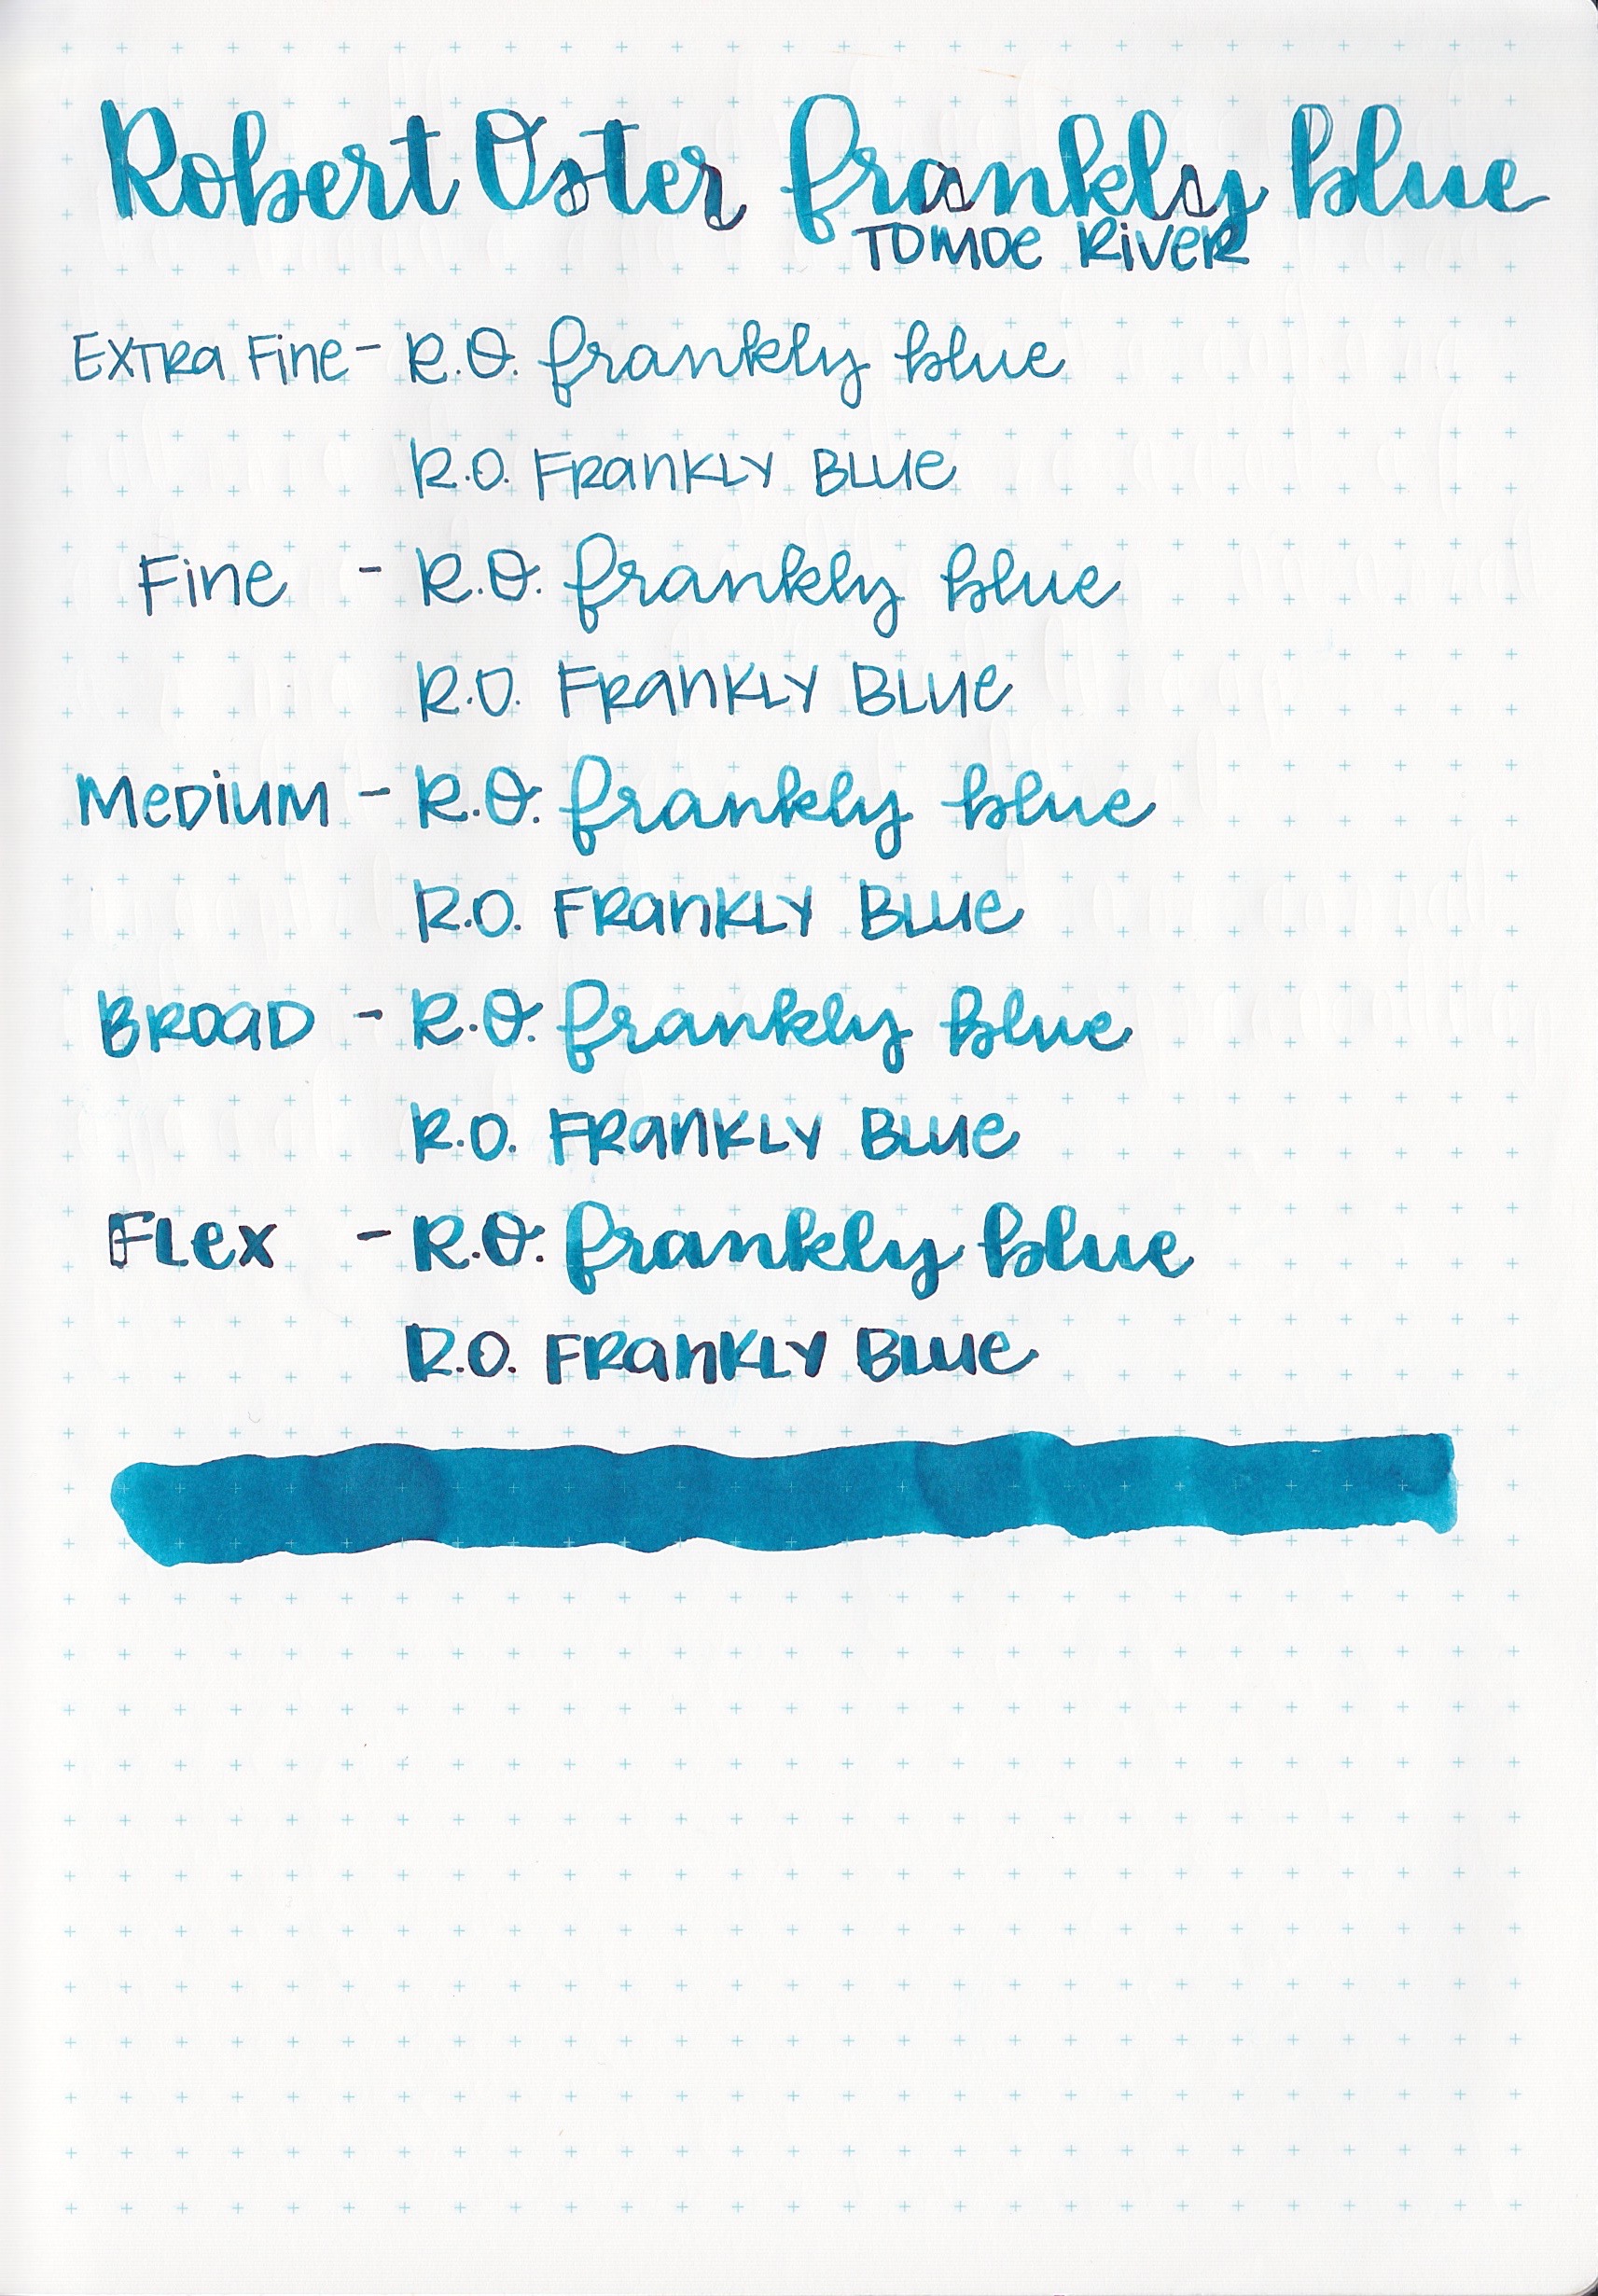 Robert Oster frankly blue
Tomoe River
Extra Fine - R.O. frankly blue
R.O. Frankly Blue
Fine - R.O. frankly blue
R.O. Frankly Blue
Medium - R.O. frankly blue
R.O. Frankly Blue
Broad - R.O. frankly blue
R.O. Frankly Blue
Flex - R.O. frankly blue
R.O. Frankly Blue